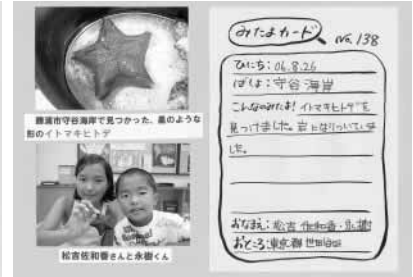 勝浦市守谷海岸で見つかった、星のような
形のイトマキヒトデ
松吉佐和香さんと永樹くん
みたよカード No. 138
ひにち:06.8.26
ばしょ:守谷海岸
こんなのみたよ! イトマキヒトデを
見つけました。岩にはりついていま
した。
おなまえ:松吉 佐和香・永樹
おところ:東京都世田谷区